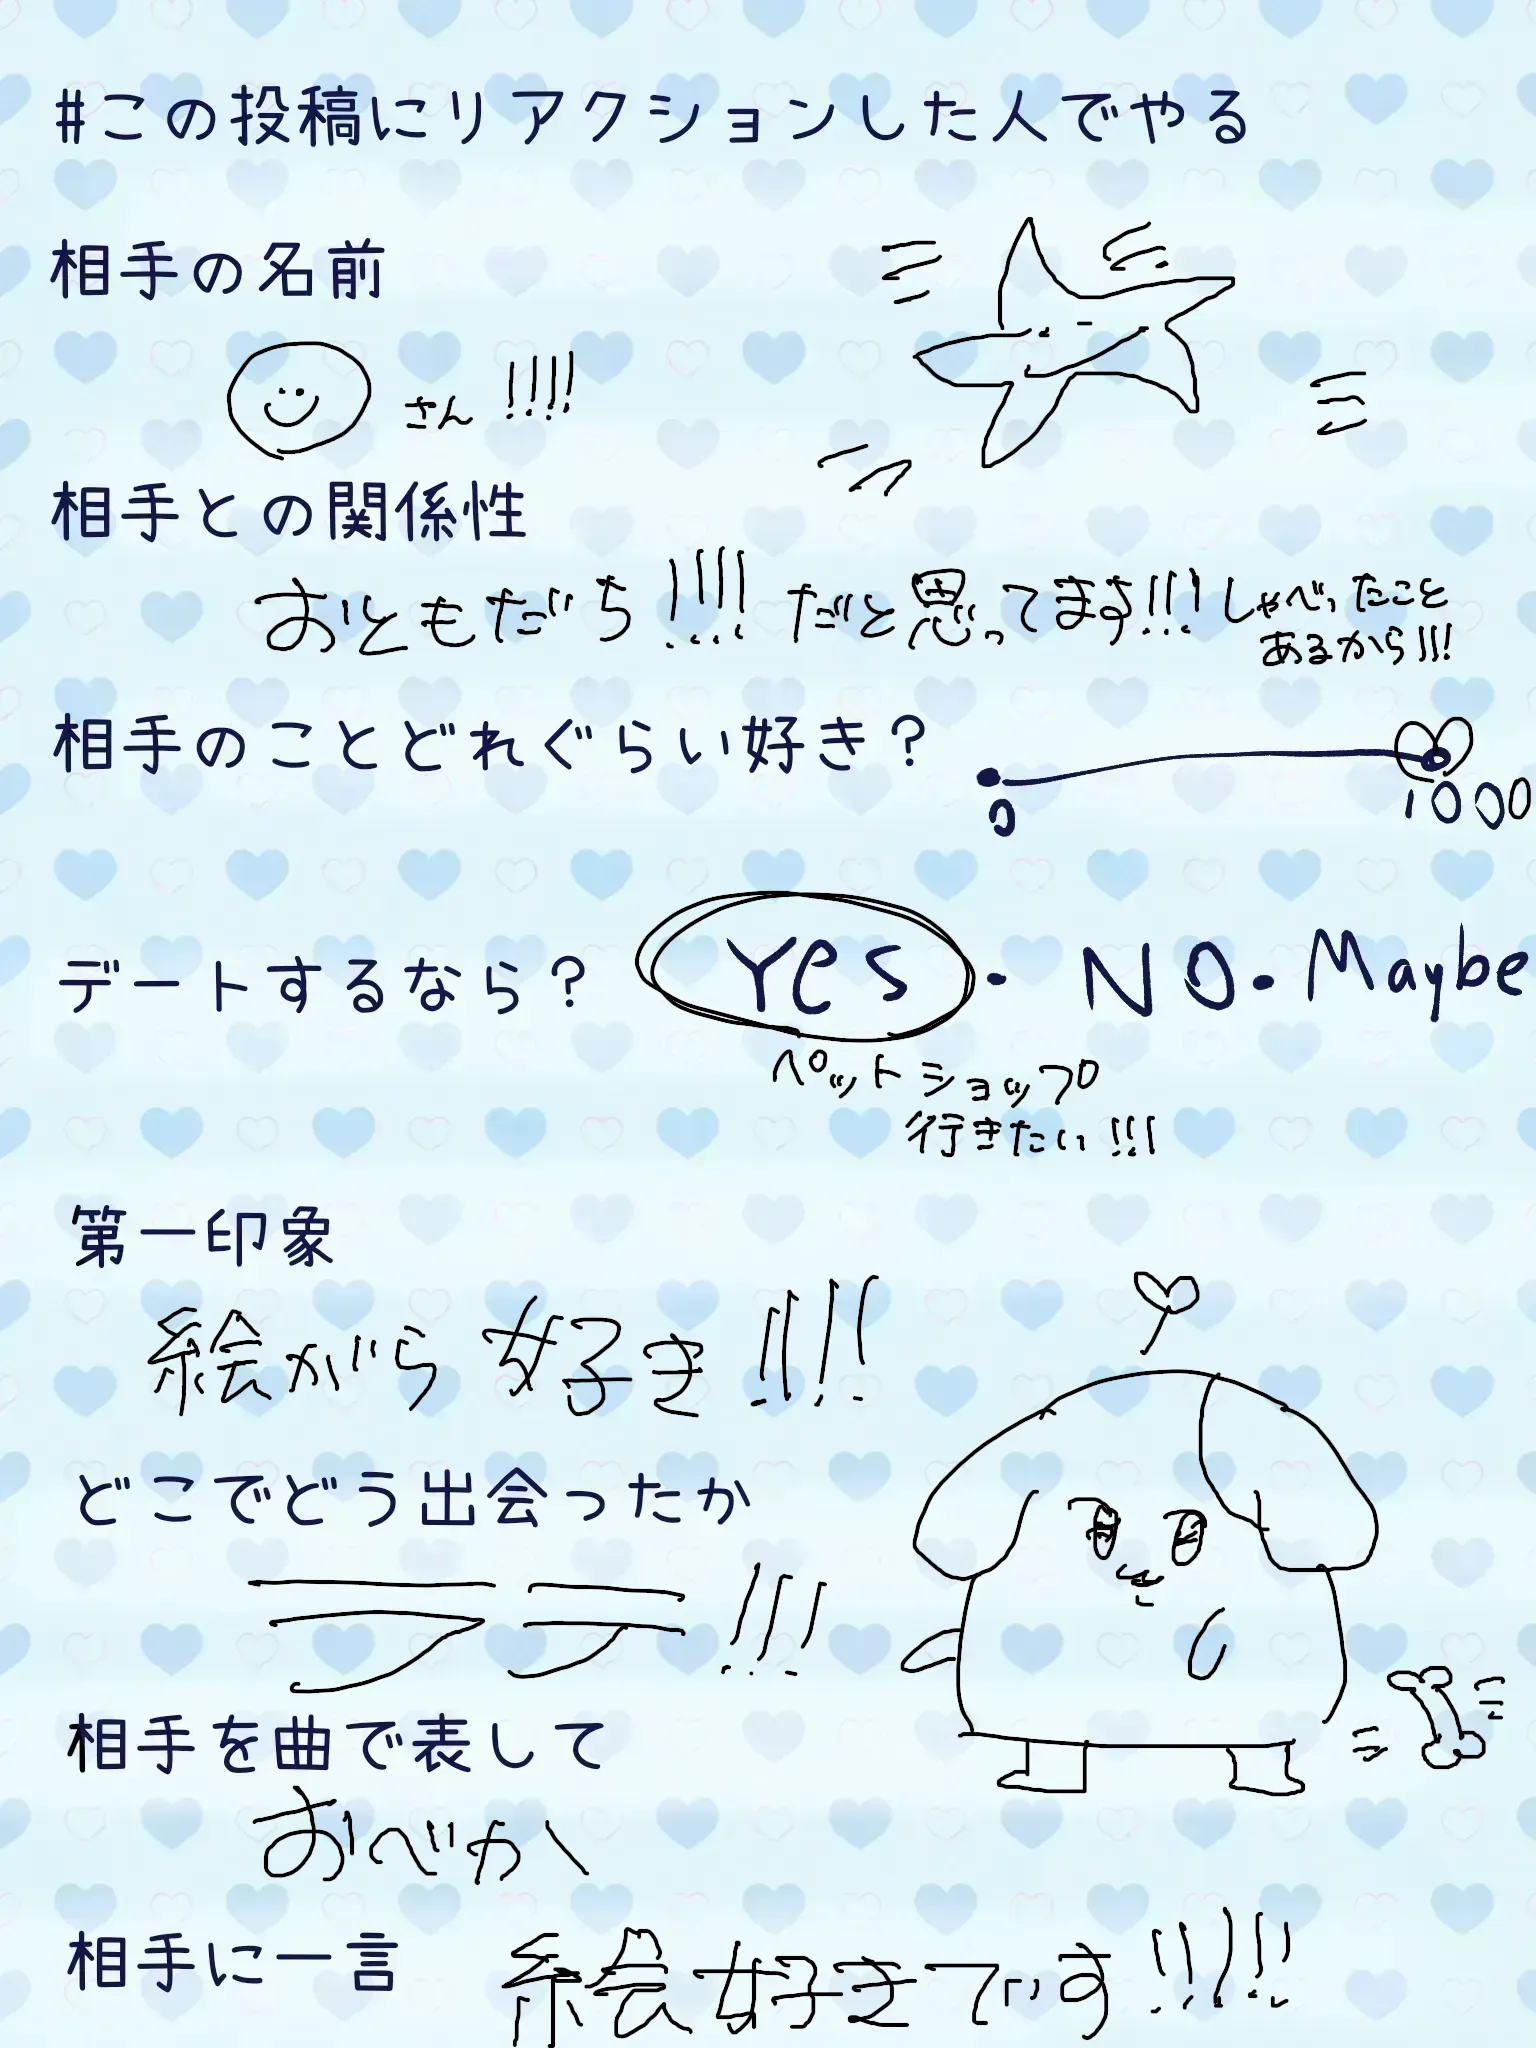 #この投稿にリアクションした人でやる
相手の名前
さん!!!!
相手との関係性
おともだち!!!!だと思ってます!!!しゃべったこと
あるから!!!
相手のことどれぐらい好き?
0 1000
デートするなら? Yes・NO・Maybe
ペットショップ
行きたい!!!
第一印象
絵がら好き!!!!
どこでどう出会ったか
ララ!!!
相手を曲で表して
おべか
相手に一言 絵好きです!!!!!